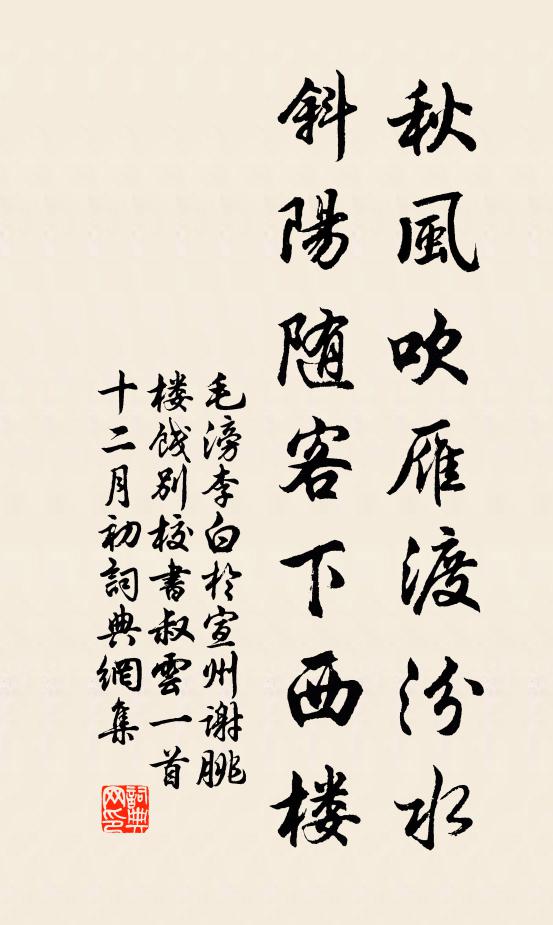 秋風吹雁渡汾水
斜陽随客下西楼
毛滂李白於宣州谢朓
楼饯别校書叔雲一首
十二月初詞典網集
詞典网印